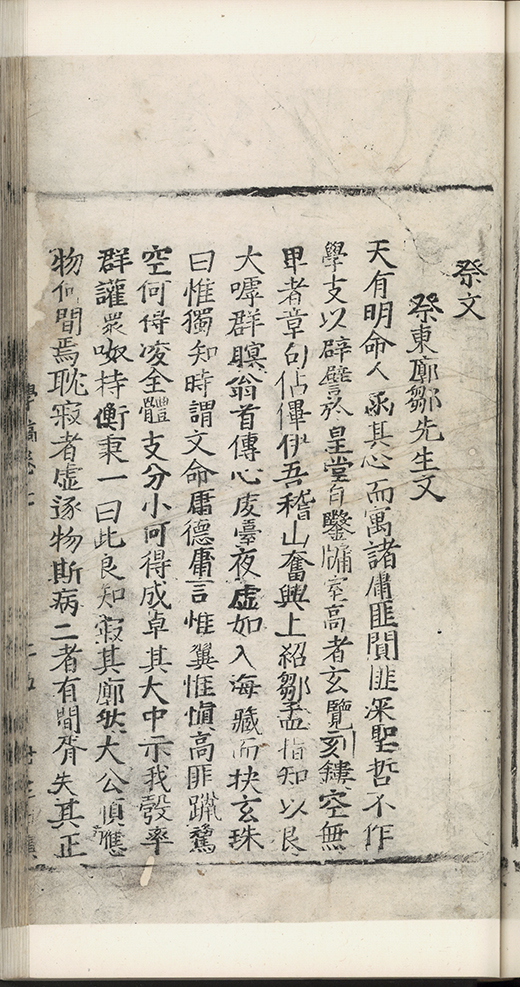 祭文
祭東廓鄒先生文
天有明命人承其心而寓諸庸匪閒匪深聖哲不作
學支以辟譬於皇堂自鑿牖室高者玄覽刻鏤空無
卑者章句佔儸伊吾稽山奮興上紹鄒孟指知以良
大嘑群瞑翁首傳心庋臺夜虛如入海藏而抉玄珠
曰惟獨知時謂文命庸德庸言惟翼惟慎高匪躐騖
空何得凌全體支分小何得成卓其大中示我彀率
群讙眾呶持衡秉一曰此良知寂其廓然大公慎應
物何間焉耽寂者虛逐物斯病二者有間胥失其正
學